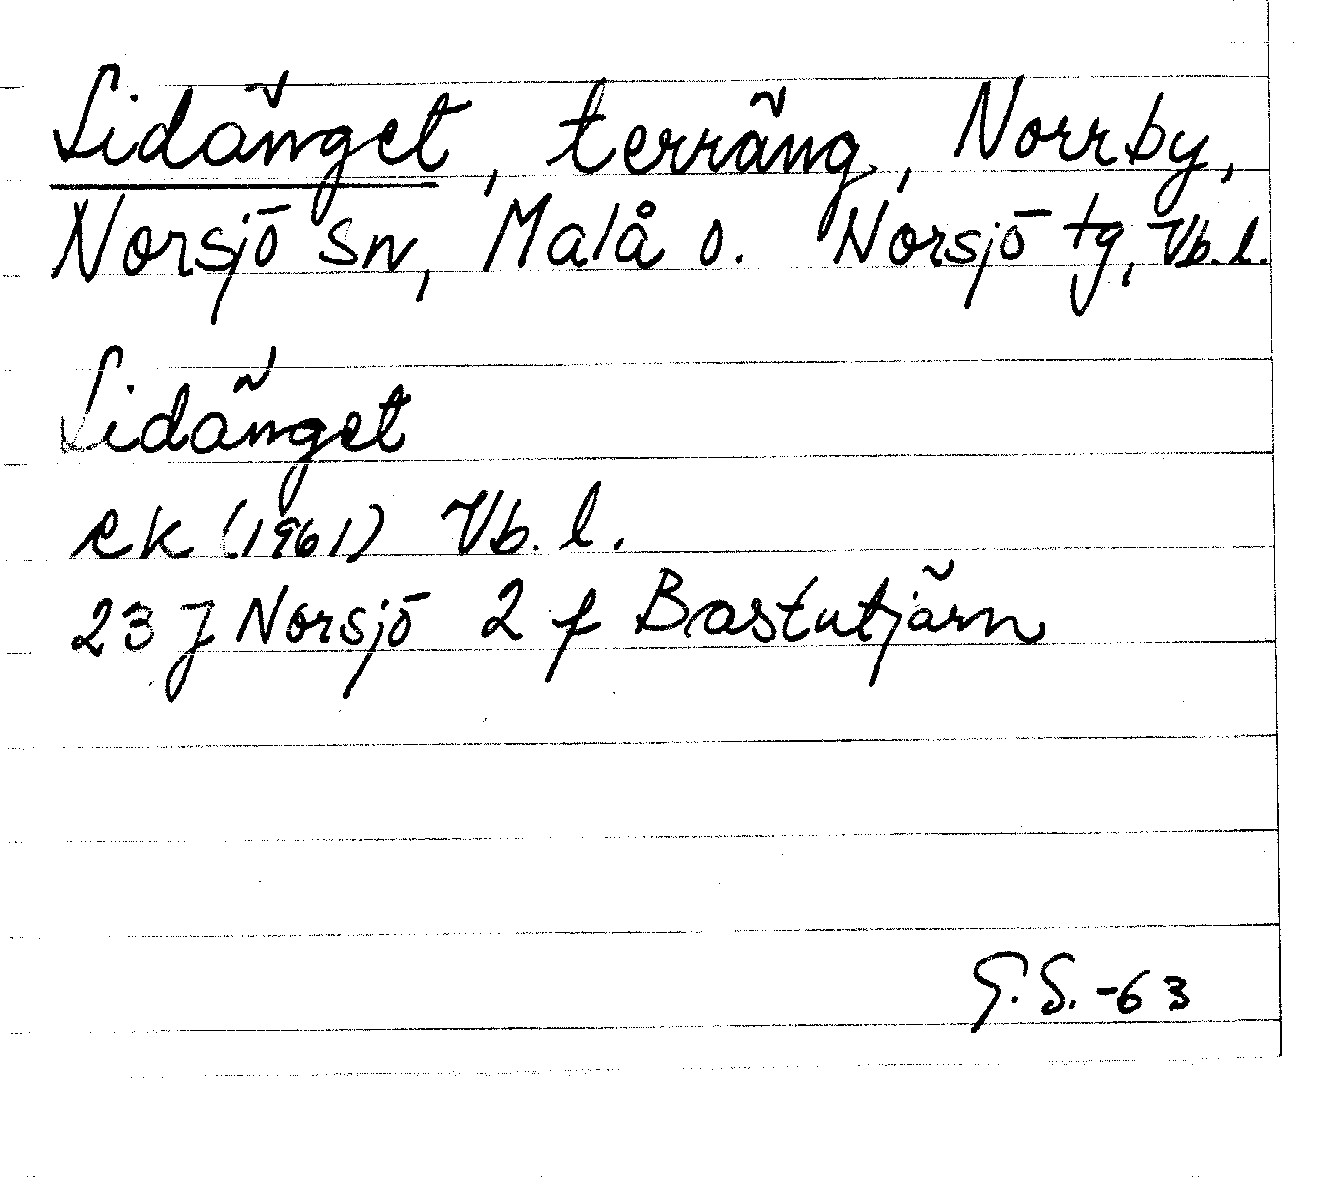 Lidänget, terräng, Norrby,
Norsjö sn, Malå o. Norsjö tg, Vb. l.
Lidänget
RK (1961) Vb. l.
23 J Norsjö 2 f Bastutjärn
G. S. -63